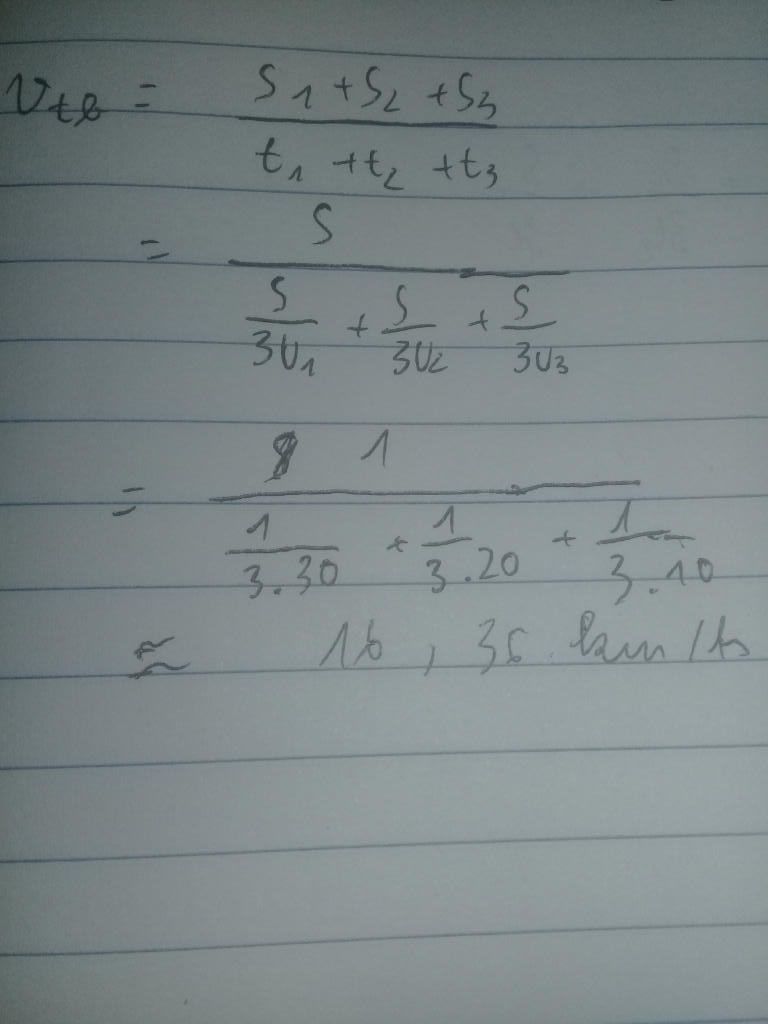 v_tb = (s₁ + s₂ + s₃) / (t₁ + t₂ + t₃)
= s / (s/3v₁ + s/3v₂ + s/3v₃)
= 1 / (1/3.30 + 1/3.20 + 1/3.10)
≈ 16,36 km/h